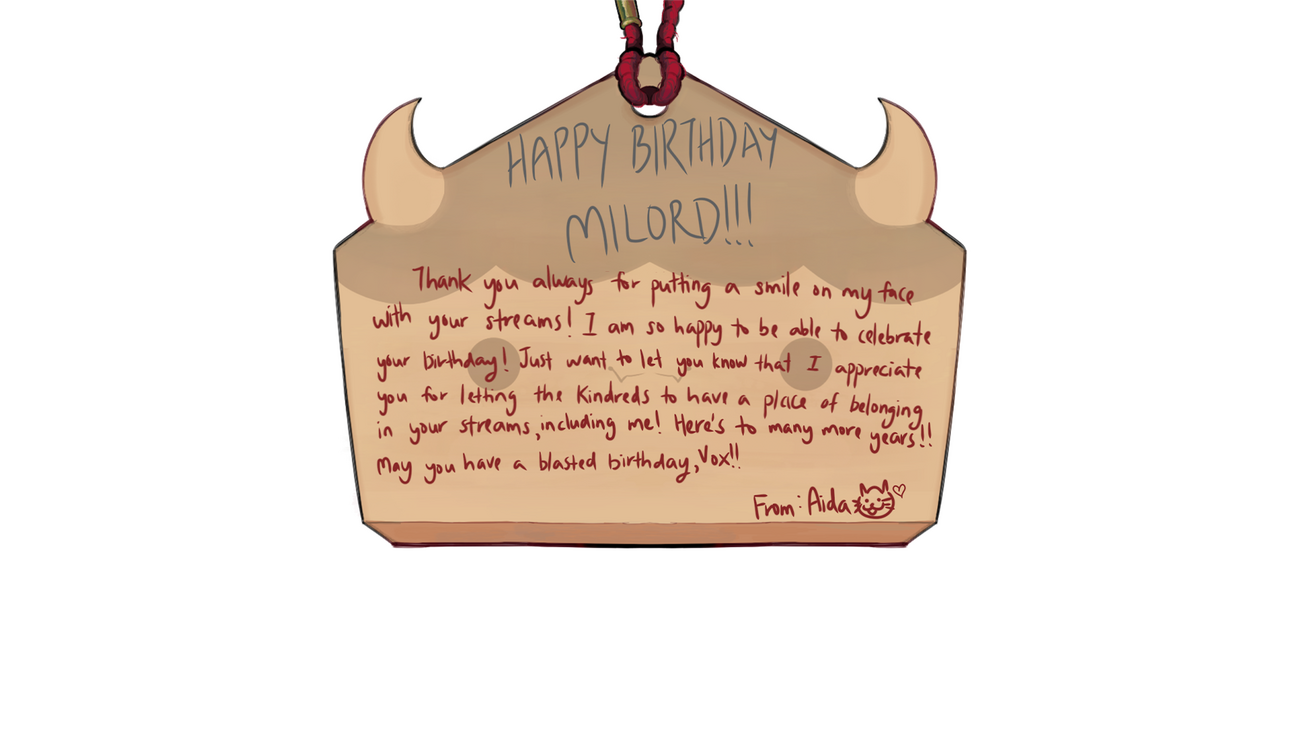 HAPPY BIRTHDAY
MILORD!!!
Thank you always for putting a smile on my face
with your streams! I am so happy to be able to celebrate
your birthday! Just want to let you know that I appreciate
you for letting the Kindreds to have a place of belonging
in your streams, including me! Here's to many more years!!
May you have a blasted birthday, Vox!!
From: Aida